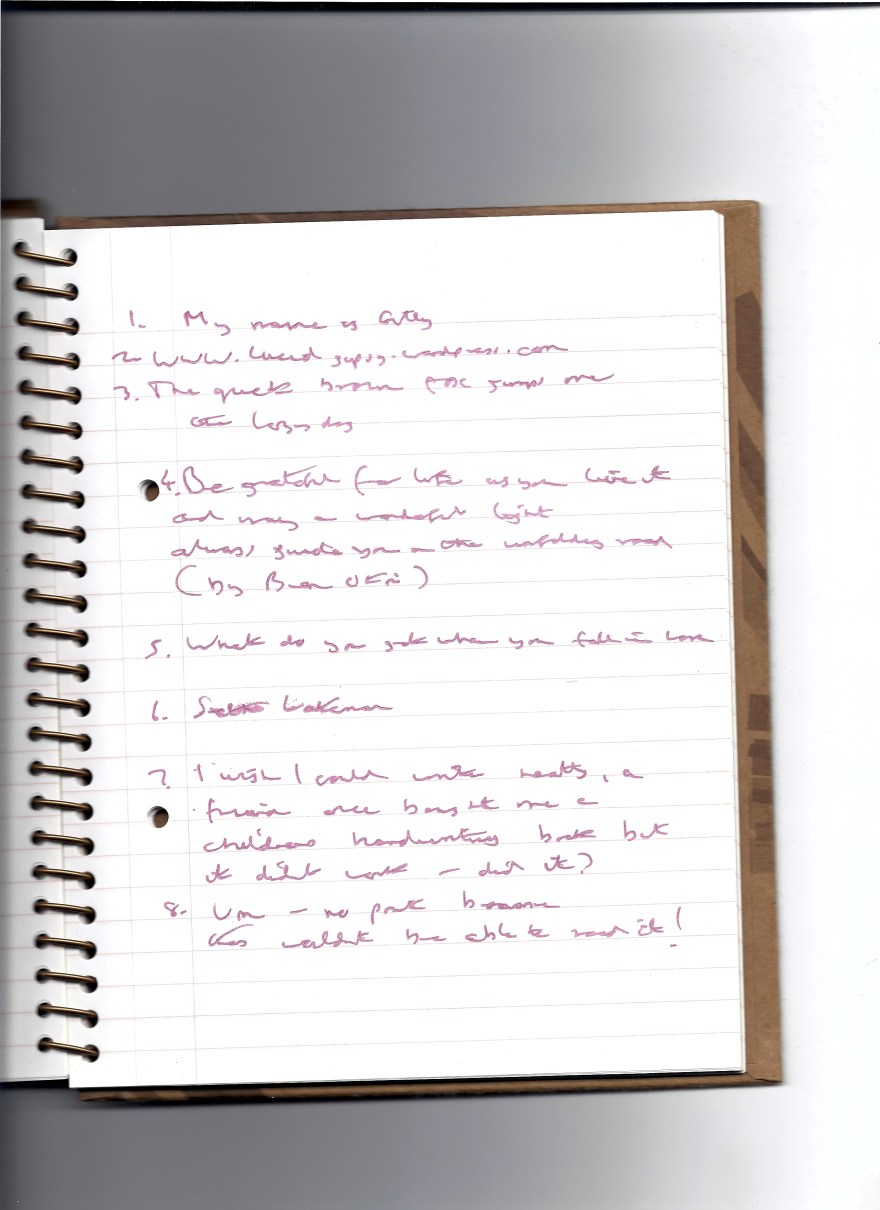 1. My name is
2. www.lucidgypsy.wordpress.com
3. The quick brown fox jumps over
the lazy dog
4. Be grateful for life as you live it
and may a wonderful light
always guide you on the unfolding road
(by Ben Okri)
5. What do you get when you fall in love
6. Wakeman
7. I wish I could write neatly, a
friend once bought me a
childrens handwriting book but
it didnt work - did it?
8. Um - no point because
they wouldnt be able to read it!